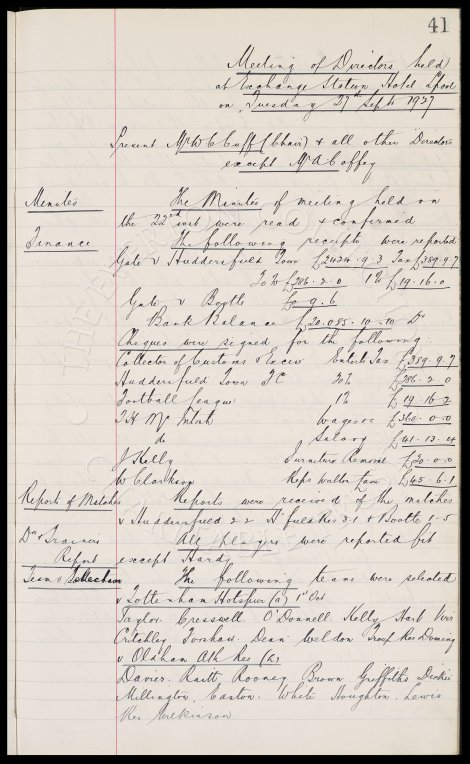 41
Meeting of Directors held
at Exchange Station Hotel L'pool
on Tuesday 27th Sept 1927
Present Mr W C Cuff (Chair) & all other Directors
except Mr A Coffey
Minutes The Minutes of meeting held on
the 22nd inst were read & confirmed
Finance The following receipts were reported
Gate v Huddersfield Town £2434.9.3 Tax £389.9.7
20% £286.2.0 1% £19.16.0
Gate v Bootle £0.9.6
Bank Balance £20.085.10.10 Dr
Cheques were signed for the following:
Collector of Customs & Excise Entertt Tax £389.9.7
Huddersfield Town FC 20% £286.2.0
Football League 1% £19.16.2
T H McIntosh Wages &c £360.0.0
do Salary £41.13.4
J Kelly Furniture Remont £20.0.0
W Clarkson £45.6.1
Report of Matches Reports were received of the matches
v Huddersfield 2-2 H'field Res 3-1 & Bootle 1-5
Drs & Trainers Report All players were reported fit
except Hardy
Teams Selection The following teams were selected
v Tottenham Hotspur (a) 1st Oct
Taylor. Cresswell. O'Donnell. Kelly Hart Virr
Critchley Forshaw. Dean Weldon Troup Res Doming
v Oldham Ath Res (h)
Davies. Raitt Rooney Brown Griffiths Dickie
Millington. Easton. White Houghton. Lewis
Res Wilkinson